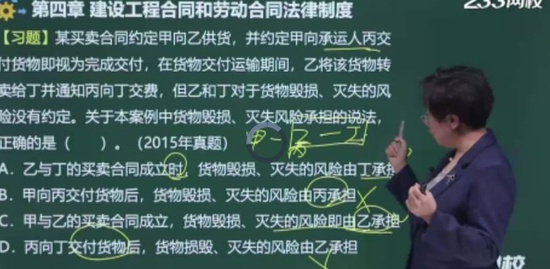 第四章 建设工程合同和劳动合同法律制度
233网校
【习题】某买卖合同约定甲向乙供货，并约定甲向承运人丙交
付货物即视为完成交付，在货物交付运输期间，乙将该货物转
卖给丁并通知丙向丁交费，但乙和丁对于货物毁损、灭失的风
险没有约定。关于本案例中货物毁损、灭失风险承担的说法，
正确的是（ ）。（2015年真题）
A．乙与丁的买卖合同成立时，货物毁损、灭失的风险由丁承担
B．甲向丙交付货物后，货物毁损、灭失的风险由丙承担
C．甲与乙的买卖合同成立，货物毁损、灭失的风险即由乙承担
D．丙向丁交付货物后，货物损毁、灭失的风险由乙承担